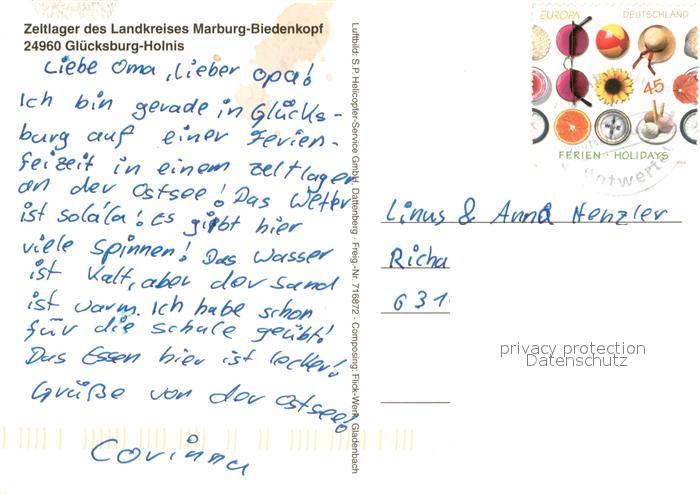 Zeltlager des Landkreises Marburg-Biedenkopf
24960 Glücksburg-Holnis
Liebe Oma, lieber Opa!
Ich bin gerade in Glücks-
burg auf einer Ferien-
freizeit in einem Zeltlager
an der Ostsee! Das Wetter
ist solála! Es gibt hier
viele Spinnen! Das Wasser
ist kalt, aber der Sand
ist warm. Ich habe schon
für die Schule geübt!
Das Essen hier ist lecker!
Grüße von der Ostsee!
Corinna
Luftbild: S.P. Helicopter-Service GmbH, Dattenberg · Freig.-Nr. 716872 · Composing: Flick-Werk, Gladenbach
EUROPA DEUTSCHLAND
45
FERIEN · HOLIDAYS
Entwertet
Linus & Anna Henzler
Richa
631
privacy protection
Datenschutz